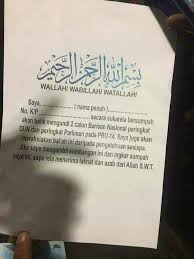 بسم الله الرحمن الرحيم
WALLAHI WABILLAHI WATALLAHI
Saya, .................... ( nama penuh ) ....................
No. K/P .................... secara sukarela bersumpah
akan balik mengundi 2 calon Barisan Nasional peringkat
DUN dan peringkat Parlimen pada PRU-14. Saya juga akan
merahsiakan hal ini dari pada pengetahuan sesiapa.
Jika saya mengambil sumbangan ini dan ingkar sumpah
saya ini, saya rela menerima laknat dan azab dari Allah S.W.T.